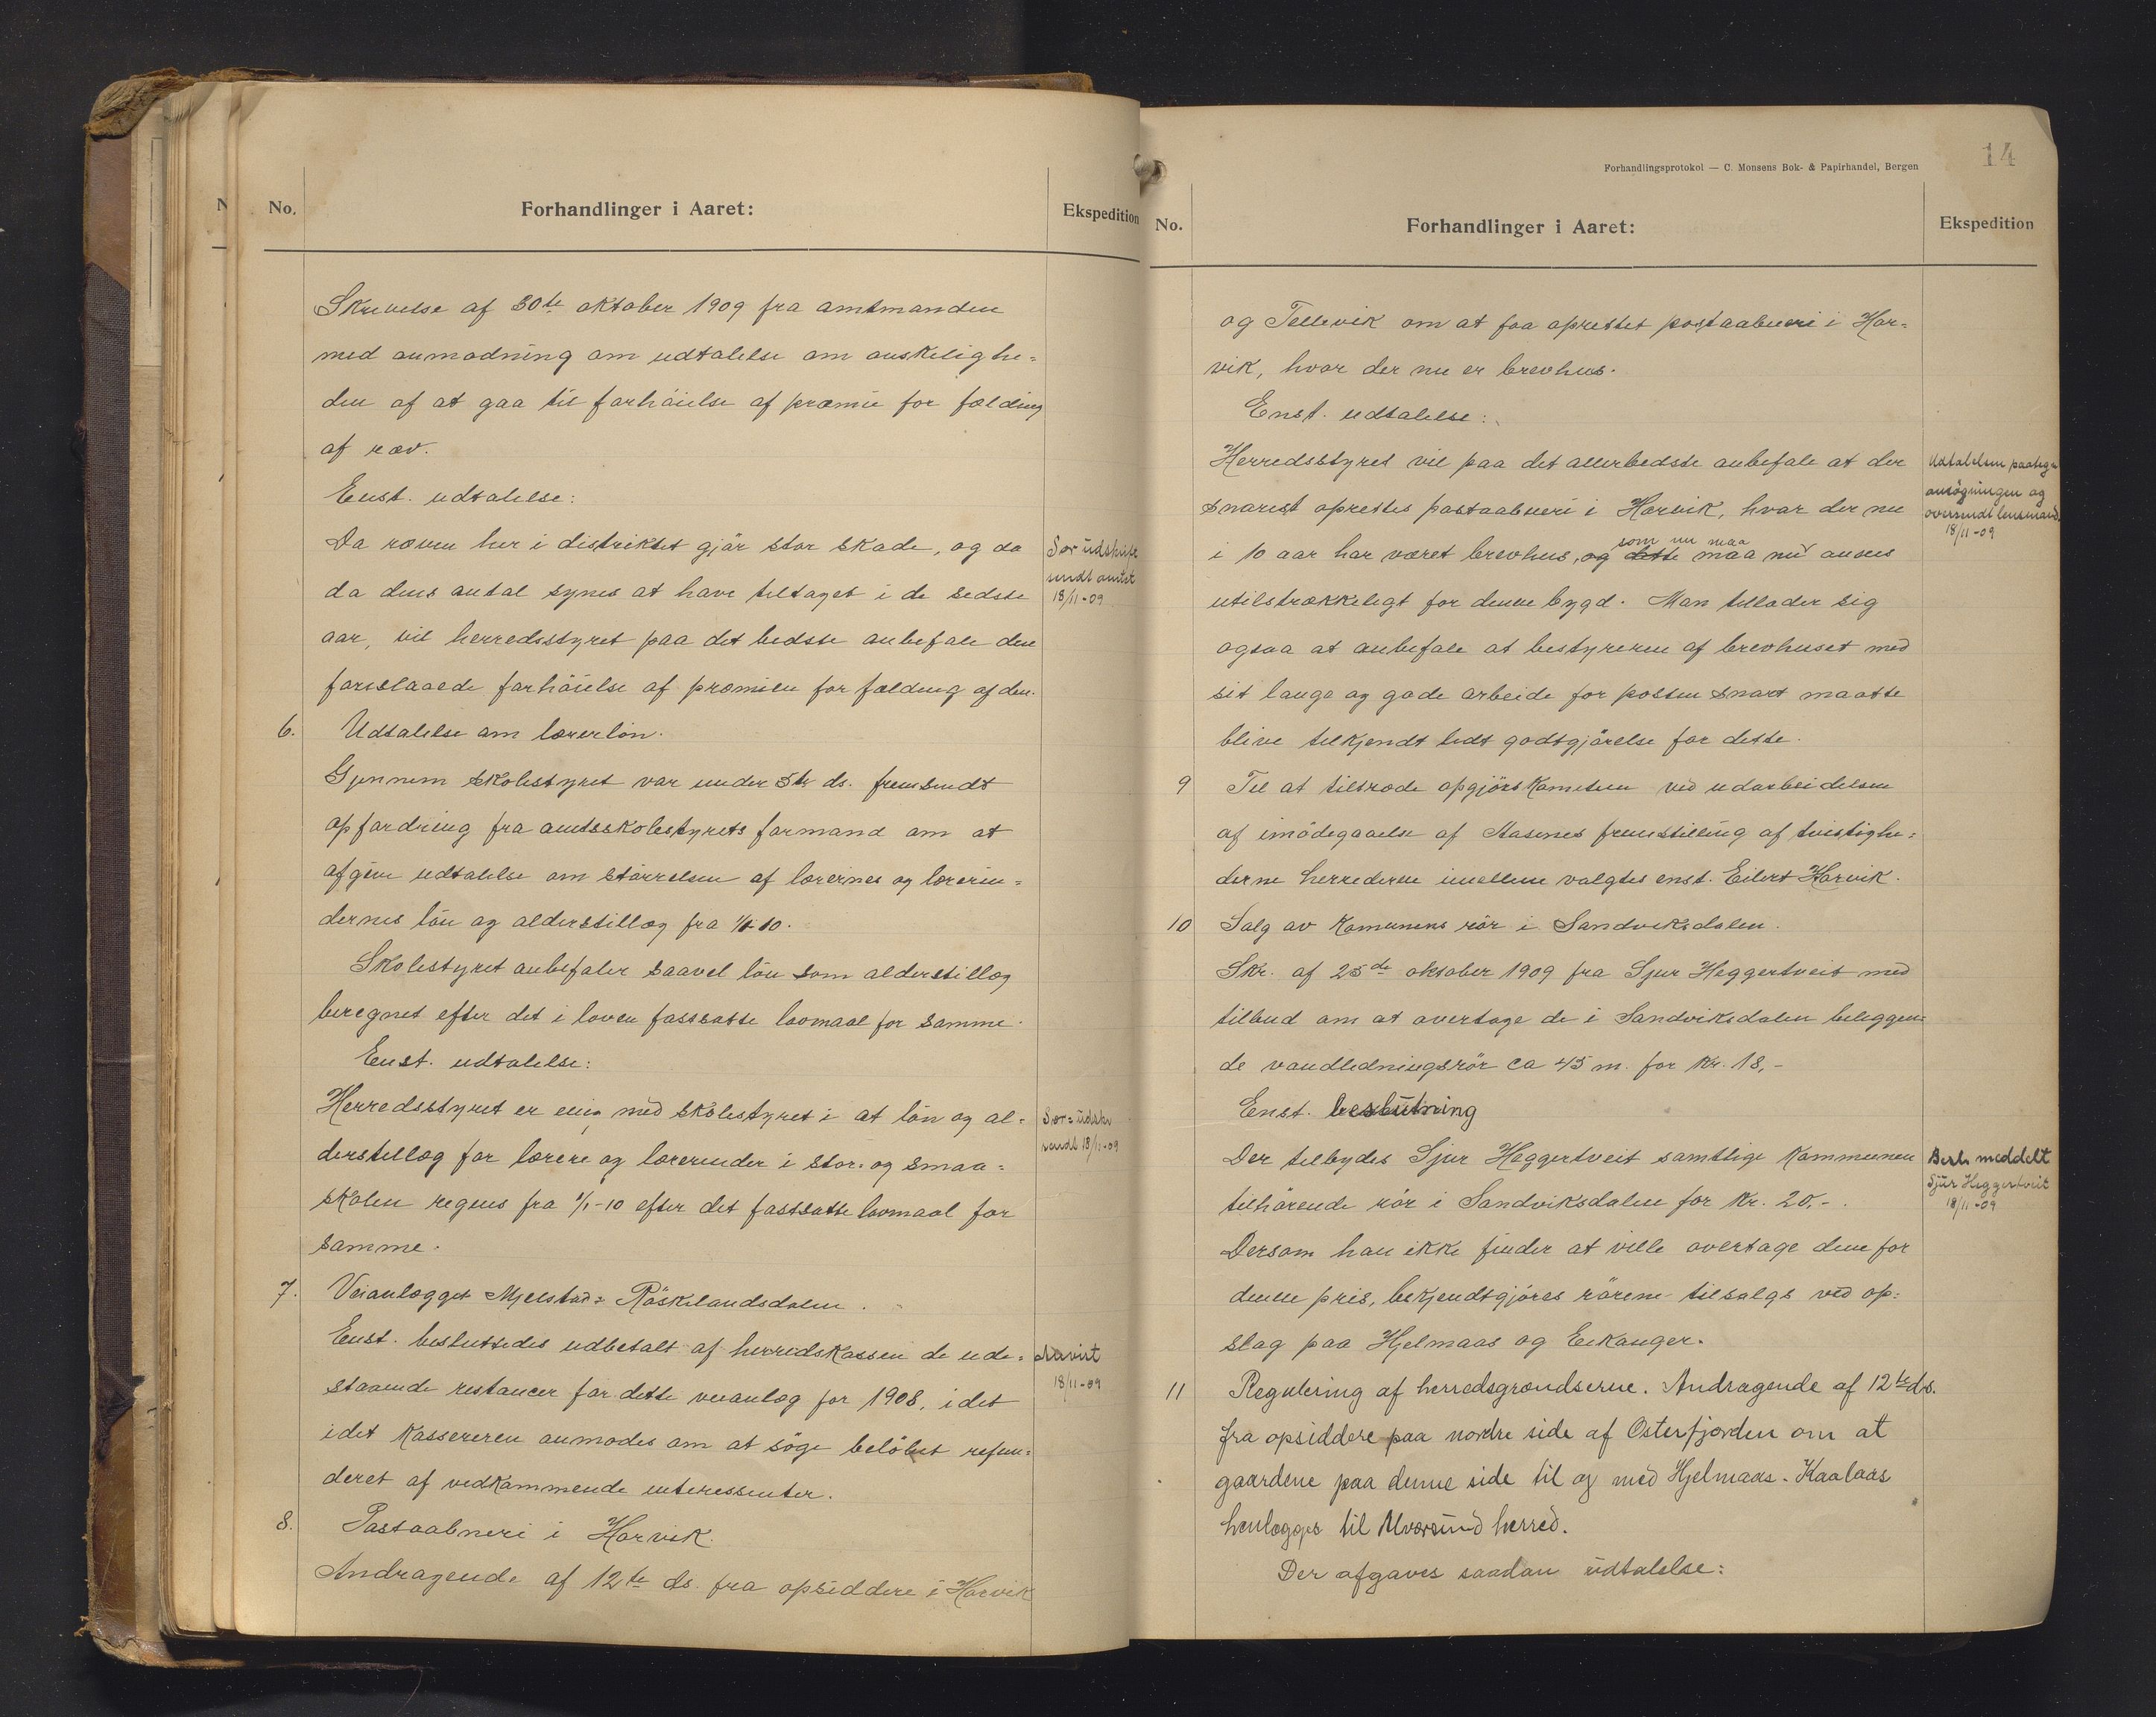 No.
Forhandlinger i Aaret:
Ekspedition
Skrivelse af 30te oktober 1909 fra amtmanden
med anmodning om udtalelse om ønskelighe=
den af at gaa til forhöielse af præmie for fælding
af ræv.
Enst. udtalelse:
Da ræven her i distriktet gjör stor skade, og da
da dens antal synes at have tiltaget i de sidste
aar, vil herredsstyret paa det bedste anbefale den
foreslaaede forhöielse af præmien for fælding af den.
Særudskrift
sendt amtet
18/11-09
6. Udtalelse om lærerlön.
Gjennem skolestyret var under 5te ds. fremsendt
opfordring fra amtsskolestyrets formand om at
afgive udtalelse om störrelsen af lærernes og lærerin=
dernes lön og alderstillæg fra 1/1-10.
Skolestyret anbefaler saavel lön som alderstillæg
beregnet efter det i loven fastsatte lavmaal for samme.
Enst. udtalelse:
Herredsstyret er enig med skolestyret i at lön og al=
derstillæg for lærere og lærerinder i stor- og smaa=
skolen regnes fra 1/1-10 efter det fastsatte lavmaal for
samme.
Sær=udskr
sendt 18/11-09
7. Veianlægget Mjelstad= Röskelandsdalen.
Enst. besluttedes udbetalt af herredskassen de ude=
staaende restancer for dette veianlæg for 1908, idet
idet kassereren anmodes om at söge belöbet refun=
deret af vedkommende interessenter.
Anvist
18/11-09
8. Postaabneri i Horvik.
Andragende af 12te ds. fra opsiddere i Horvik
Forhandlingsprotokol — C. Monsens Bok- & Papirhandel, Bergen
14
No.
Forhandlinger i Aaret:
Ekspedition
og Tellevik om at faa oprettet postaabneri i Hor=
vik, hvor der nu er brevhus.
Enst. udtalelse:
Herredsstyret vil paa det allerbedste anbefale at der
snarest oprettes postaabneri i Horvik, hvor der nu
som nu maa
i 10 aar har været brevhus, og dette maa nu anses
utilstrækkeligt for denne bygd. Man tillader sig
ogsaa at anbefale at bestyreren af brevhuset med
sit lange og gode arbeide for posten snart maatte
blive tilkjendt lidt godtgjörelse for dette.
Udtalelsen paateg
ansögningen og
oversendt lensmand.
18/11-09
9 Til at tiltræde opgjörskomiteen ved udarbeidelsen
af imödegaaelse af Aasenes fremstilling af tvistighe=
derne herrederne imellem valgtes enst. Eilert Horvik.
10 Salg av komunens rör i Sandviksdalen.
Skr. af 25de oktober 1909 fra Sjur Heggertveit med
tilbud om at overtage de i Sandviksdalen beliggen=
de vandledningsrör ca 45 m. for Kr. 18,-
Enst. beslutning
Der tilbydes Sjur Heggertveit samtlige kommunen
tilhörende rör i Sandviksdalen for Kr. 20,-.
Dersom han ikke finder at ville overtage dem for
denne pris, bekjendtgjöres rörene tilsalgs ved op=
slag paa Hjelmaas og Eikanger.
Besl. meddelt
Sjur Heggertveit
18/11-09
11 Regulering af herredsgrændserne. Andragende af 12te ds.
fra opsiddere paa nordre side af Osterfjorden om at
gaardene paa denne side til og med Hjelmaas - Kaalaas
henlægges til Alversund herred.
Der afgaves saadan udtalelse: